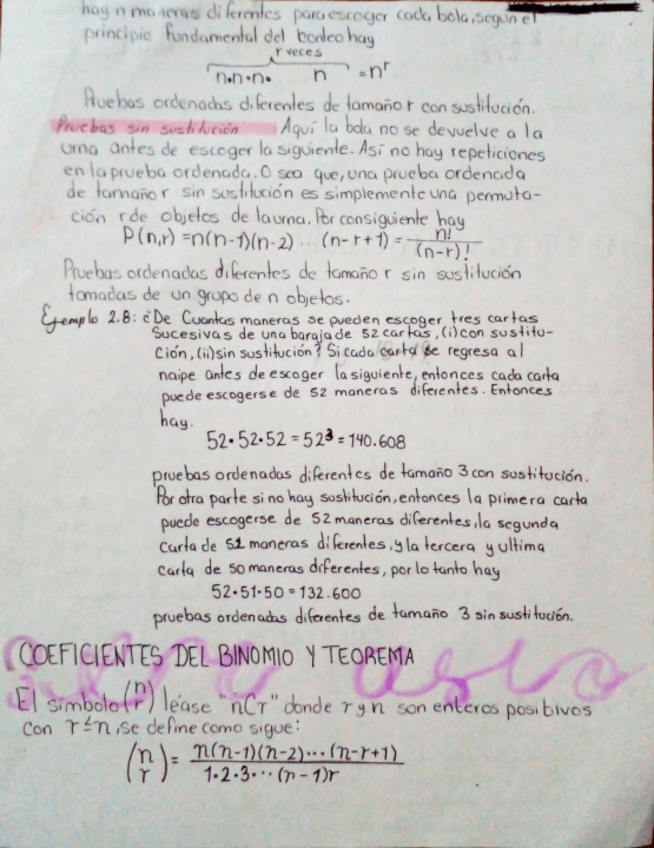 hay n maneras diferentes para escoger cada bola, segun el
principio fundamental del conteo hay
r veces
n•n•n• n = nʳ
Pruebas ordenadas diferentes de tamaño r con sustitución.
Pruebas sin sustitución Aquí la bola no se devuelve a la
urna antes de escoger la siguiente. Así no hay repeticiones
en la prueba ordenada. O sea que, una prueba ordenada
de tamaño r sin sustitución es simplemente una permuta-
ción r de objetos de la urna. Por consiguiente hay
P(n,r) = n(n-1)(n-2) ... (n-r+1) = n!/(n-r)!
Pruebas ordenadas diferentes de tamaño r sin sustitución
tomadas de un grupo de n objetos.
Ejemplo 2.8: ¿De Cuantas maneras se pueden escoger tres cartas
Sucesivas de una baraja de 52 cartas, (i) con sustitu-
ción, (ii) sin sustitución? Si cada carta se regresa al
naipe antes de escoger la siguiente, entonces cada carta
puede escogerse de 52 maneras diferentes. Entonces
hay.
52•52•52 = 52³ = 140.608
pruebas ordenadas diferentes de tamaño 3 con sustitución.
Por otra parte si no hay sustitución, entonces la primera carta
puede escogerse de 52 maneras diferentes, la segunda
carta de 51 maneras diferentes, y la tercera y ultima
carta de 50 maneras diferentes, por lo tanto hay
52•51•50 = 132.600
pruebas ordenadas diferentes de tamaño 3 sin sustitución.
COEFICIENTES DEL BINOMIO Y TEOREMA
El símbolo (n r) léase "nCr" donde r y n son enteros positivos
con r ≤ n, se define como sigue:
(n r) = n(n-1)(n-2)...(n-r+1)/1•2•3•...(n-1)r